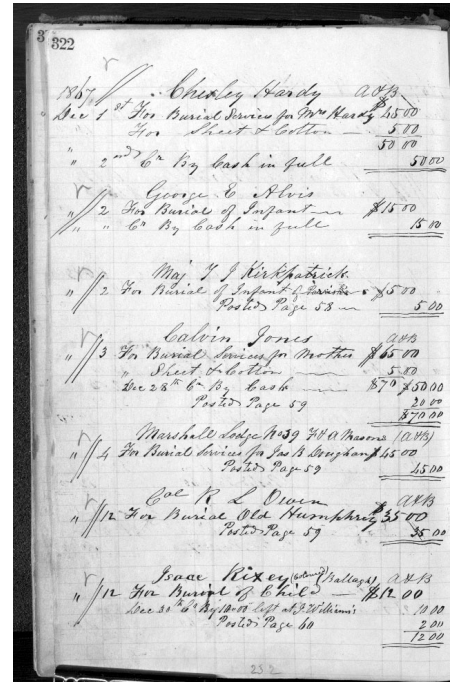 3 322
1867 Chesley Hardy A&B
Dec 1st For Burial Services for Mrs Hardy $45 00
For Sheet & Cotton — 5 00
50 00
" 2nd Cr By Cash in full 50 00
George E Alvis
" 2 For Burial of Infant — $15 00
" " Cr By Cash in full 15 00
Maj T J Kirkpatrick
" 2 For Burial of Infant of $5 00
Posted Page 58 — 5 00
Calvin Jones A&B
" 3 For Burial Services for Mother $65 00
" Sheet & Cotton — 5 00
Dec 28th Cr By Cash — $70 $50 00
Posted Page 59 20 00
$70 00
Marshall Lodge No 39 F & A Masons (A&B)
" 4 For Burial Services for Jas B Doughan $45 00
Posted Page 59 45 00
Col R L Owen A&B
" 12 For Burial Old Humphrey $35 00
Posted Page 59 35 00
Isaac Rixey (Ballagh) A&B
" 12 For Burial of Child — $12 00
Dec 30th Cr By 10.00 left at J. Williams 10 00
Posted Page 60 2 00
12 00
252